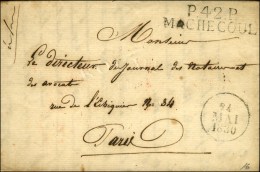 P.42.P.
MACHECOUL
Monsieur
Le directeur du Journal des Notaires et
des avocats
rue de
No 34
Paris
24
MAI
1830